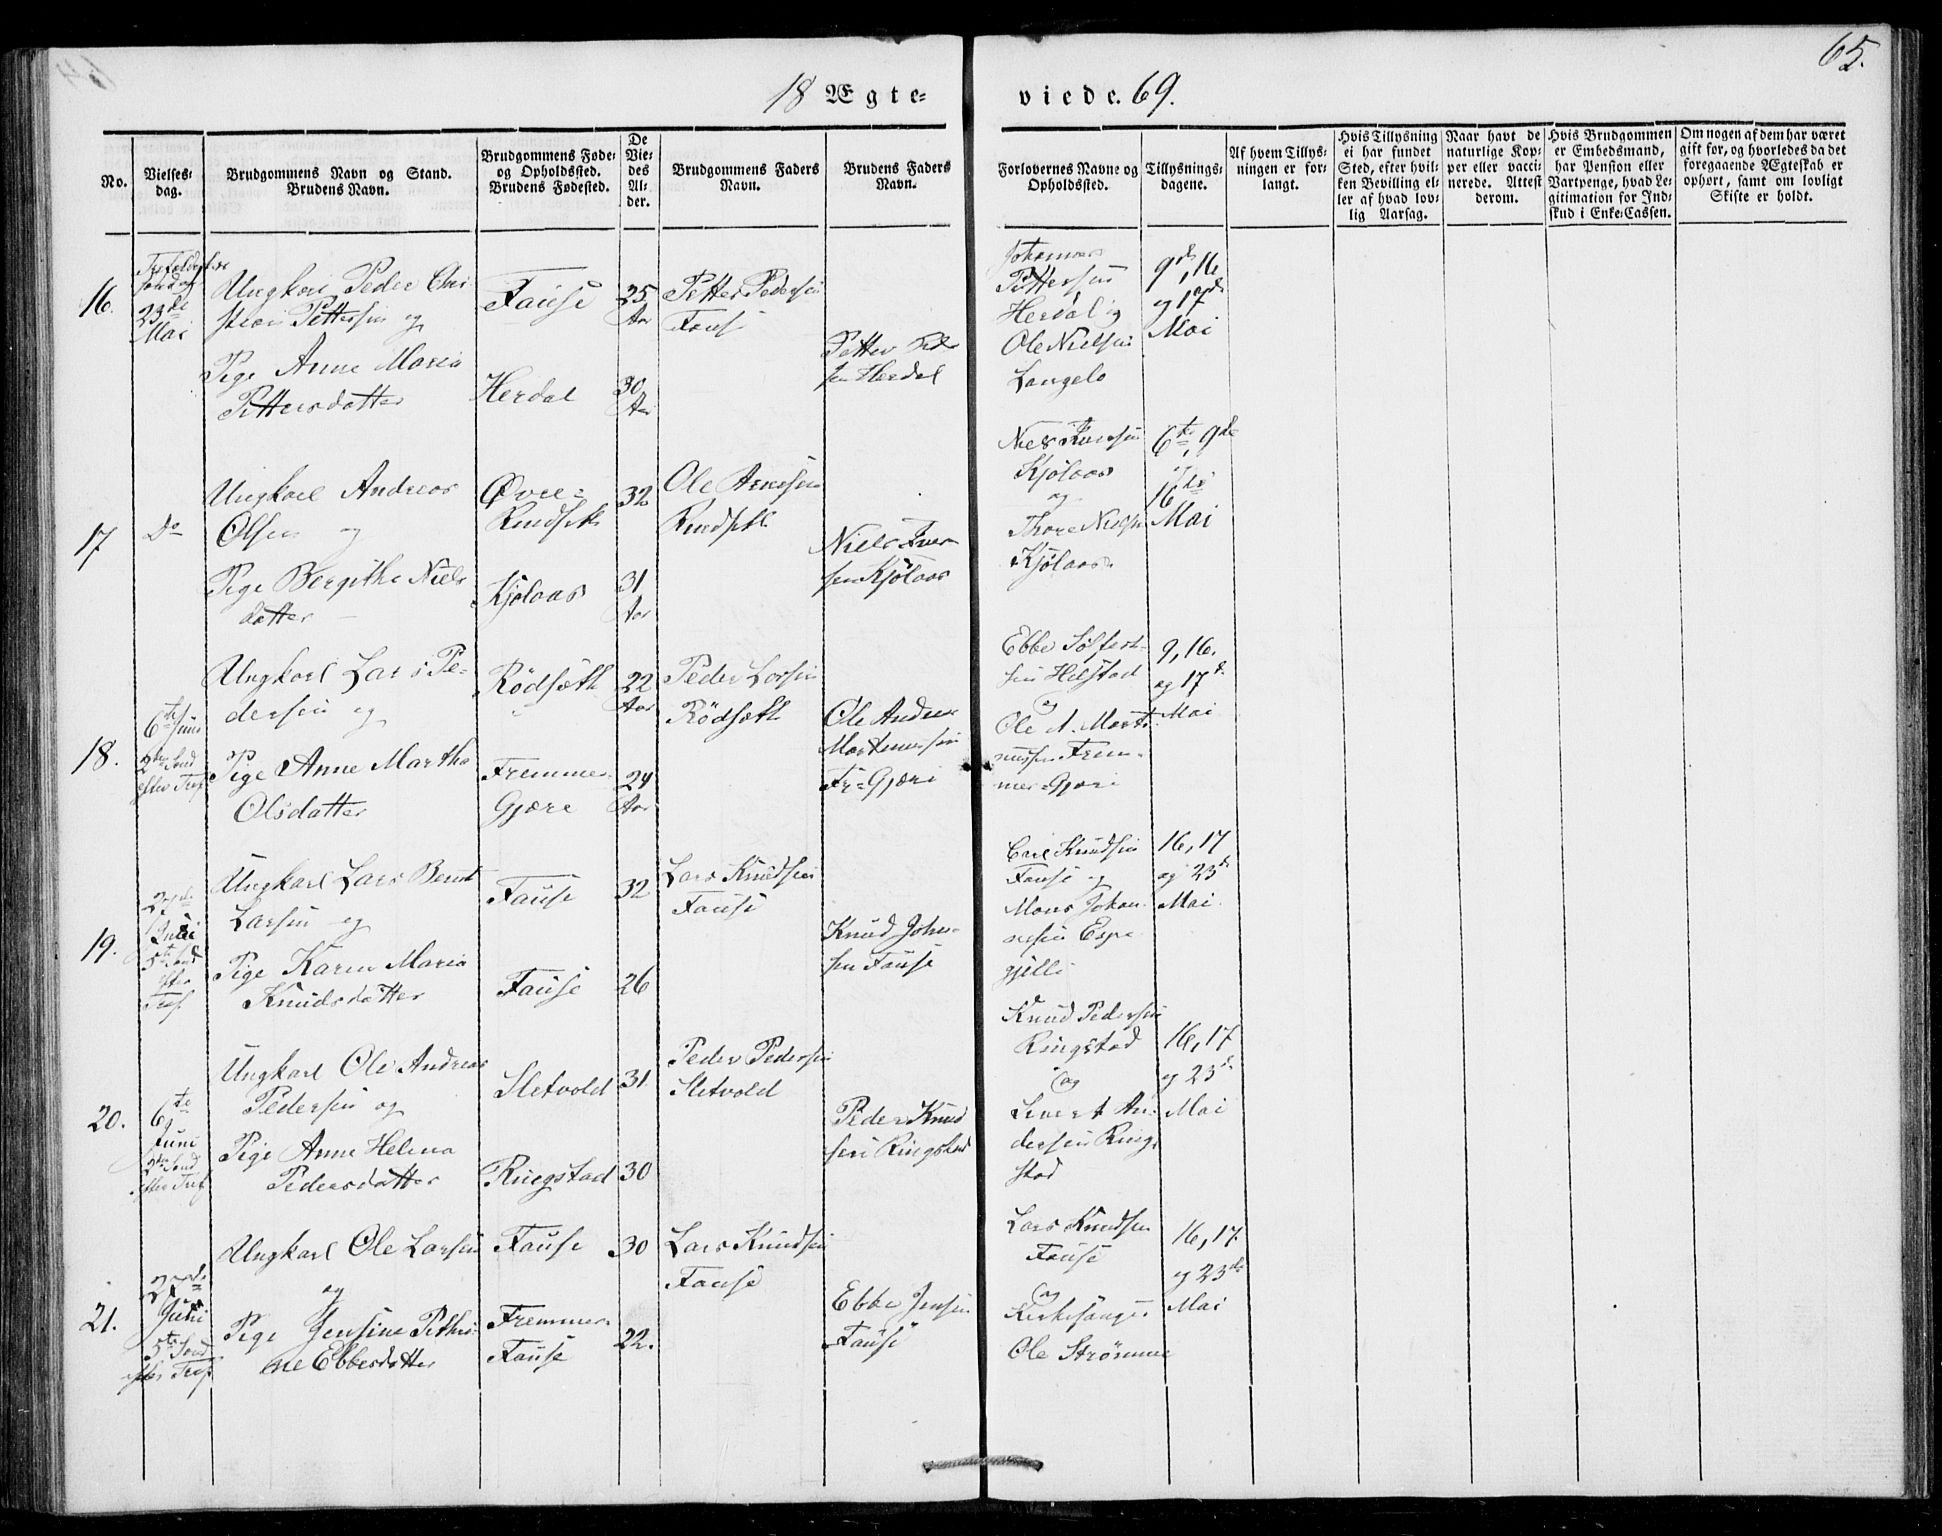 65.
18 Ægte-
viede. 69.
No.
Vielses-
dag.
Brudgommens Navn og Stand.
Brudens Navn.
Brudgommens Føde-
og Opholdssted.
Brudens Fødested.
De
Vie-
des
Al-
der.
Brudgommens Faders
Navn.
Brudens Faders
Navn.
Forlovernes Navne og
Opholdssted.
Tillysnings-
dagene.
Af hvem Tillys-
ningen er for-
langt.
Hvis Tillysning
ei har fundet
Sted, efter hvil-
ken Bevilling el-
ler af hvad lov-
lig Aarsag.
Naar havt de
naturlige Kop-
per eller vacci-
nerede. Attest
derom.
Hvis Brudgommen
er Embedsmand,
har Pension eller
Vartpenge, hvad Le-
gitimation for Ind-
skud i Enke-Cassen.
Om nogen af dem har været
gift før, og hvorledes da det
foregaaende Ægteskab er
ophørt, samt om lovligt
Skifte er holdt.
16.
23de
Mai
Ungkarl Peder Chri
stian Pettersen og
Pige Anne Maria
Pettersdatter
Fause
Herdal
25
Aar
30
Aar
Petter Pedersen
Fause
Petter Peder
sen Herdal
Johannes
Pettersen
Herdal og
Ole Nielsen
Langelo
9de, 16
og 17de
Mai
17
Do
Ungkarl Andreas
Olsen og
Pige Bergithe Niels
datter
Øvre-
Rindseth
Kjølaas
32
31
Aar
Ole Arnesen
Rindseth
Niels Iver-
sen Kjølaas
Niels Iversen
Kjølaas
og
Thore Nielsen
Kjølaas
6te, 9de
16de
Mai
18.
6te Juni
2den Sond
efter Tref
Ungkarl Lars Pe-
dersen og
Pige Anne Martha
Olsdatter
Rødsæth
Fremmer-
Gjære
22
Aar
24
Aar
Peder Larsen
Rødsæth
Ole Andreas
Martinussen
Fr-Gjære
Ebbe Sølfest-
sen Helstad
og
Ole A. Marti
nussen Frem-
mer-Gjære
9, 16.
og 17d.
Mai
19.
27de
Juni
5te Sond
efter
Tref
Ungkarl Lars Bernt
Larsen og
Pige Karen Maria
Knudsdatter
Fause
Fause
32
26
Lars Knudsen
Fause
Knud John-
sen Fause
Carl Knudsen
Fause og
Mons Johan-
nesen Espe
gjelle
16, 17
og 23de
Mai
20.
6te
Juni
2den Sond
efter Tref
Ungkarl Ole Andreas
Pedersen og
Pige Anne Helena
Pedersdatter
Sletvold
Ringstad
31
30
Peder Pedersen
Sletvold
Peder Knud
sen Ringstad
Knud Pedersen
Ringstad
og
Sivert An-
dersen Ring-
stad
16, 17
og 23de
Mai
21.
27de
Juni
5te Sond
efter Tref
Ungkarl Ole Larsen
og
Pige Jensine Pethri-
ne Ebbesdatter
Fause
Fremmer-
Fause
30
22.
Lars Knudsen
Fause
Ebbe Jensen
Fause
Lars Knudsen
Fause
og
Kirkesanger
Ole Strømme
16, 17
og 23de
Mai